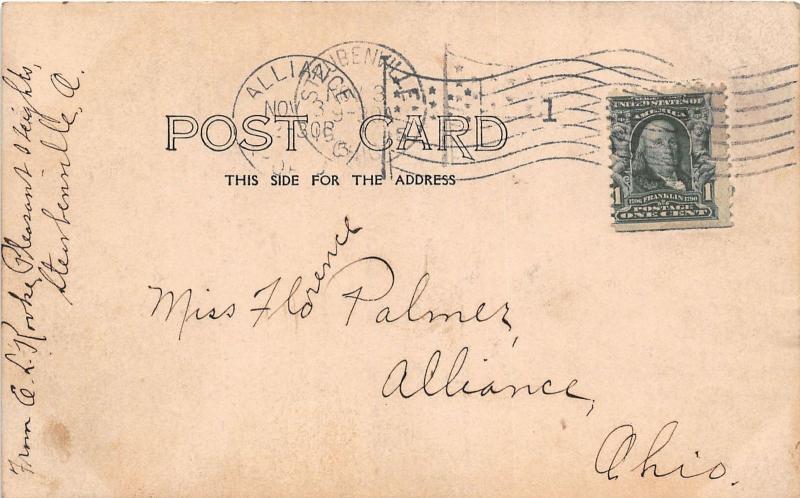 POST CARD
THIS SIDE FOR THE ADDRESS
ALLIANCE
NOV
UBENVILLE
1
UNITED STATES OF
AMERICA
1
1706 FRANKLIN 1790
POSTAGE
ONE CENT
Miss Florence Palmer,
Alliance,
Ohio.
From Pleasant Heights,
Steubenville, O.